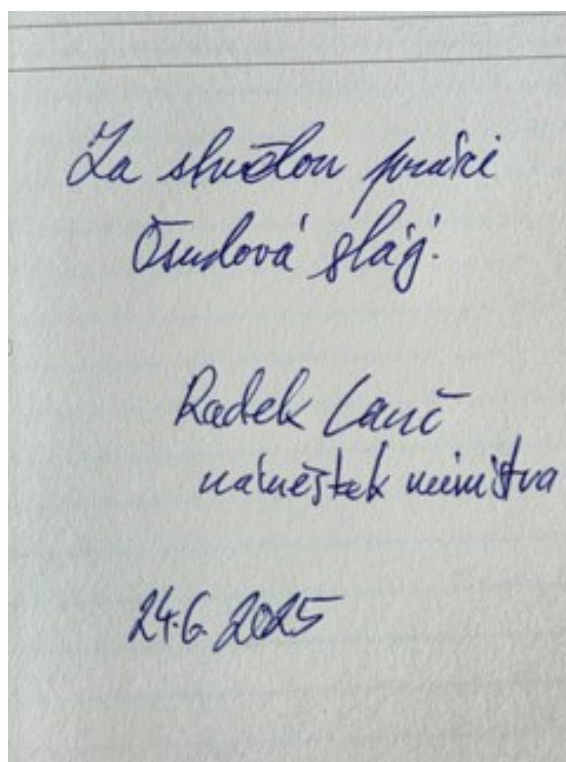 Za službou práci
Osudová
Radek Lanč
náměstek ministra
24.6.2025